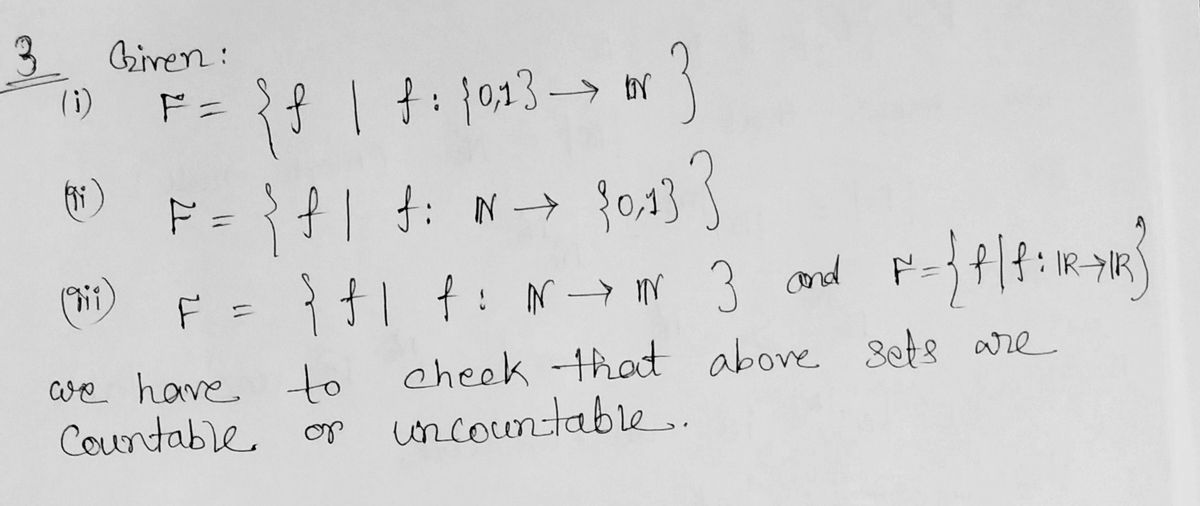 3 Given:
(i) F = { f | f: {0,1} → ℕ }
(ii) F = { f | f: ℕ → {0,1} }
(iii) F = { f | f: ℕ → ℕ } and F = { f | f: ℝ → ℝ }
we have to check that above sets are
Countable or uncountable.